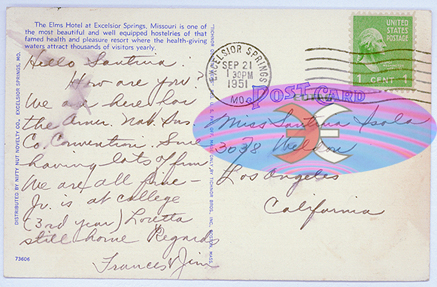 The Elms Hotel at Excelsior Springs, Missouri is one of
the most beautiful and well equipped hostelries of that
famed health and pleasure resort where the health-giving
waters attract thousands of visitors yearly.
Hello Santina:
How are you?
We are here for
the Amer. Nat. Ins.
Co. Convention. Sure
having lots of fun.
We are all fine-
Jr. is at college
(3rd year) Loretta
still home Regards
Francis & Jim
73606
DISTRIBUTED BY NIFTY NUT NOVELTY CO., EXCELSIOR SPRINGS, MO.
EXCELSIOR SPRINGS
SEP 21
1 30PM
1951
MO.
UNITED
STATES
POSTAGE
1 CENT 1
POST CARD
Miss Santina Isola
3038
Los Angeles
California